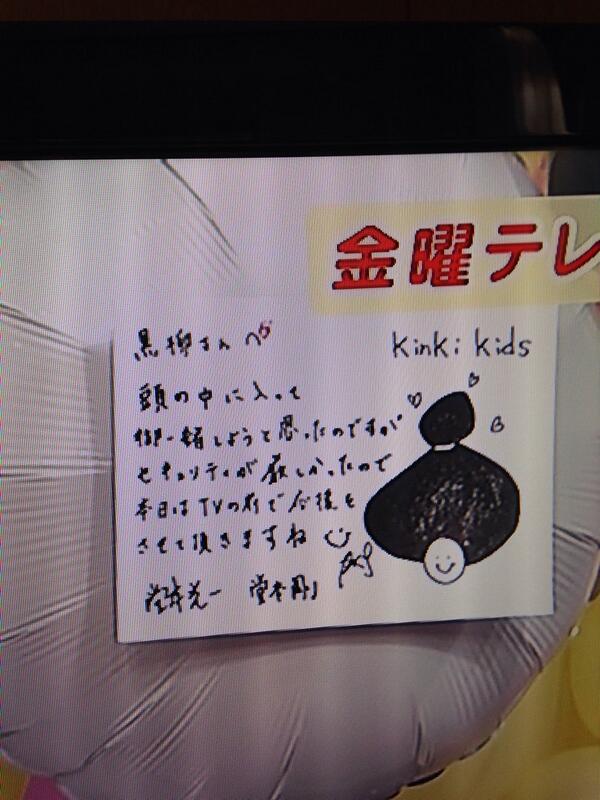 金曜テレ
黒柳さんへ
Kinki kids
頭の中に入って
御一緒しようと思ったのですが
セキュリティが厳しかったので
本日はTVの前で応援を
させて頂きますね
堂本光一 堂本剛